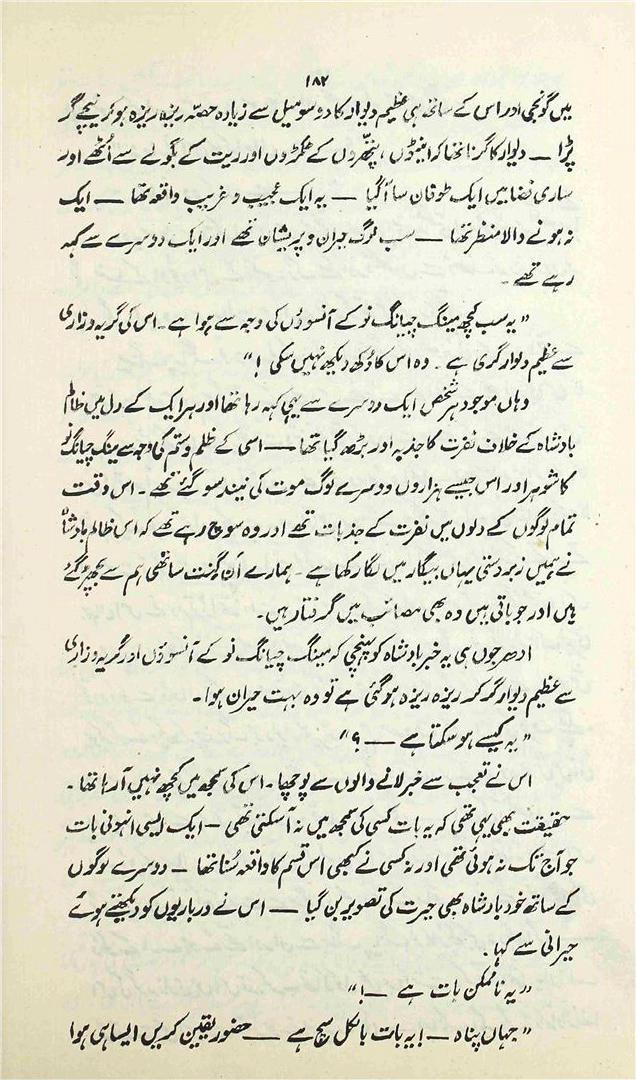 ۱۸۲
میں گونجی اور اس کے ساتھ ہی عظیم دیوار کا دو سو میل سے زیادہ حصّہ ریزہ ریزہ ہو کر نیچے گر
پڑا — دیوار کا گرنا تھا کہ اینٹوں ، پتھّروں کے ٹکڑوں اور ریت کے بگولے سے اُٹھے اور
ساری فضا میں ایک طوفان سا آگیا — یہ ایک عجیب و غریب واقعہ تھا — ایک
نہ ہونے والا منظر تھا — سب لوگ حیران و پریشان تھے اور ایک دوسرے سے کہہ
رہے تھے ۔
” یہ سب کچھ مینگ چیانگ نو کے آنسوؤں کی وجہ سے ہوا ہے ۔ اس کی گریہ وزاری
سے عظیم دیوار گری ہے ۔ وہ اس کا دُکھ دیکھ نہیں سکی ! “
وہاں موجود ہر شخص ایک دوسرے سے یہی کہہ رہا تھا اور ہر ایک کے دل میں ظالم
بادشاہ کے خلاف نفرت کا جذبہ اور بڑھ گیا تھا — اسی کے ظلم و ستم کی وجہ سے مینگ چیانگ نو
کا شوہر اور اس جیسے ہزاروں دوسرے لوگ موت کی نیند سو گئے تھے ۔ اس وقت
تمام لوگوں کے دلوں میں نفرت کے جذبات تھے اور وہ سوچ رہے تھے کہ اس ظالم بادشاہ
نے ہمیں زبردستی یہاں بیگار میں لگا رکھا ہے ۔ ہمارے ان گنت ساتھی ہم سے بچھڑ گئے
ہیں اور جو باقی ہیں وہ بھی مصائب میں گرفتار ہیں ۔
ادھر جوں ہی یہ خبر بادشاہ کو پہنچی کہ مینگ چیانگ نو کے آنسوؤں اور گریہ وزاری
سے عظیم دیوار گر کر ریزہ ریزہ ہو گئی ہے تو وہ بہت حیران ہوا ۔
” یہ کیسے ہو سکتا ہے — ؟ “
اس نے تعجب سے خبر لانے والوں سے پوچھا ۔ اس کی سمجھ میں کچھ نہیں آ رہا تھا ۔
حقیقت بھی یہی تھی کہ یہ بات کسی کی سمجھ میں نہ آ سکتی تھی — ایک ایسی انہونی بات
جو آج تک نہ ہوئی تھی اور نہ کسی نے کبھی اس قسم کا واقعہ سُنا تھا — دوسرے لوگوں
کے ساتھ خود بادشاہ بھی حیرت کی تصویر بن گیا — اس نے درباریوں کو دیکھتے ہوئے
حیرانی سے کہا ۔
” یہ ناممکن بات ہے — ! “
” جہاں پناہ — ! یہ بات بالکل سچ ہے — حضور یقین کریں ایسا ہی ہوا